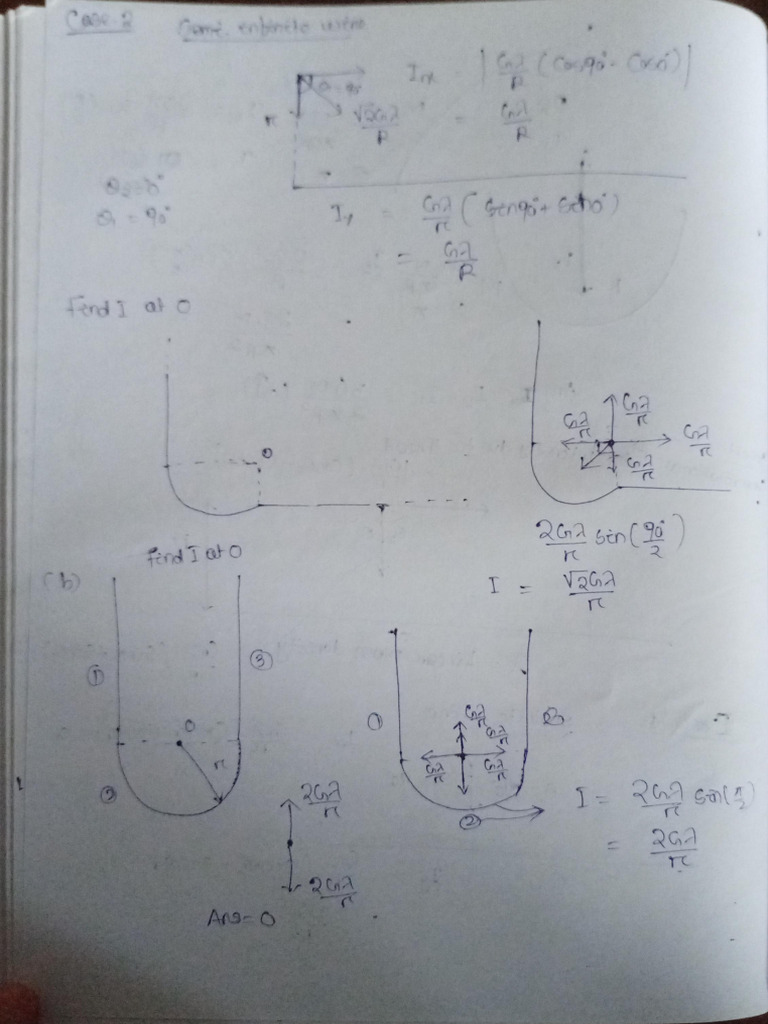 Case-2 Semi. infinite wire
Iₓ = | Gλ/r (Cos90° - Cos0°) |
θ = 90°
r
√2Gλ/r
= Gλ/r
θ₂ = 0°
θ₁ = 90°
Iᵧ = Gλ/r ( Sin90° + Sin0° )
= Gλ/r
Find I at O
O
Gλ/r
Gλ/r
Gλ/r
Gλ/r
2Gλ/r Sin(90°/2)
I = √2Gλ/r
Find I at O
(b)
①
③
O
r
②
2Gλ/r
2Gλ/r
Ans = 0
①
③
Gλ/r
Gλ/r
Gλ/r
Gλ/r
②
I = 2Gλ/r Sin(π/2)
= 2Gλ/r